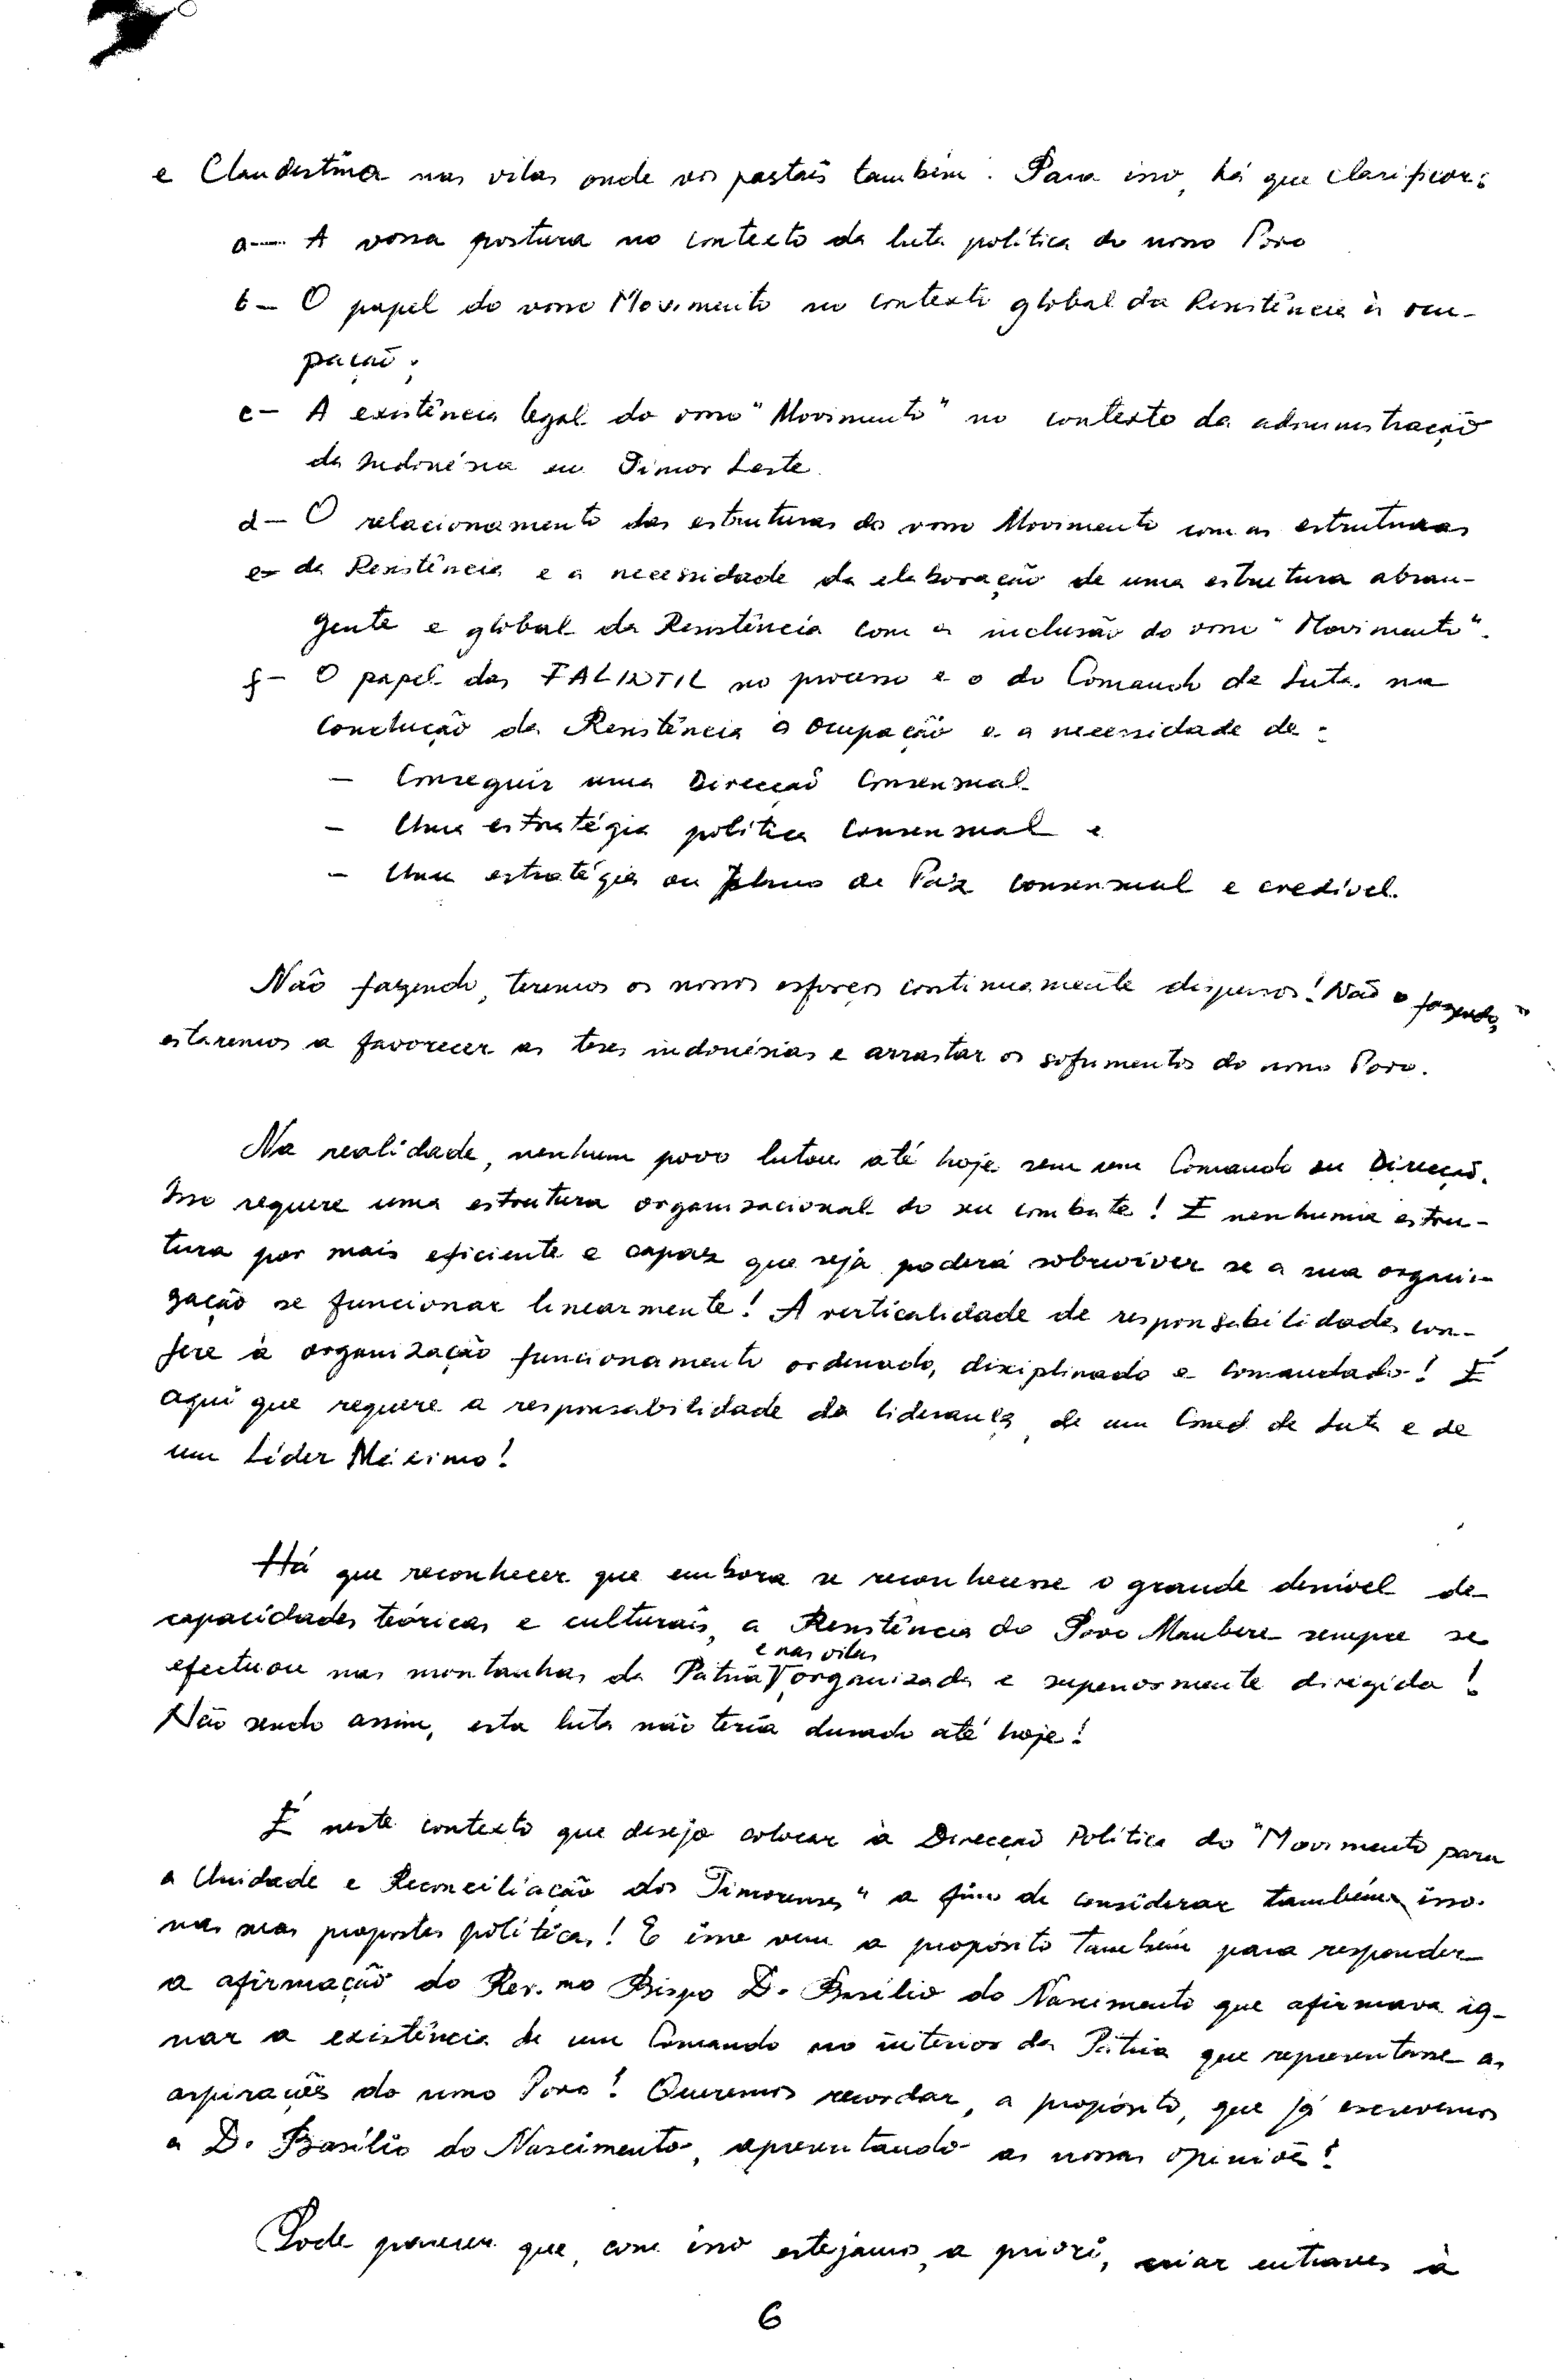 e Clandestina nas vilas onde vos pastais também. Para isso, há que clarificar:
a— A vossa postura no contexto da luta política do nosso Povo
b— O papel do vosso Movimento no contexto global da Resistência à ocu-
pação;
c— A existência legal do vosso "Movimento" no contexto da administração
da Indonésia em Timor Leste.
d— O relacionamento das estruturas do vosso Movimento com as estruturas
e- da Resistência e a necessidade da elaboração de uma estrutura abran-
gente e global da Resistência com a inclusão do vosso "Movimento".
f— O papel das FALINTIL no processo e o do Comando da Luta, na
condução da Resistência à ocupação e a necessidade de:
— Conseguir uma Direcção Consensual
— Uma estratégia política consensual e
— Uma estratégia ou plano de Paz consensual e credível.
Não fazendo, teremos os nossos esforços continuamente dispersos! Não o fazendo,
estaremos a favorecer as teses indonésias e arrastar os sofrimentos do nosso Povo.
Na realidade, nenhum povo lutou até hoje sem um Comando ou Direcção.
Isso requere uma estrutura organizacional do seu combate! E nenhuma estru-
tura por mais eficiente e capaz que seja poderá sobreviver se a sua organi-
zação se funcionar linearmente! A verticalidade de responsabilidades con-
fere à organização funcionamento ordenado, disciplinado e comandado! É
aqui que requere a responsabilidade da liderança, de um Comd de Luta e de
um Líder Máximo!
Há que reconhecer que embora se reconhecesse o grande desnível de
capacidades teóricas e culturais, a Resistência do Povo Maubere sempre se
e nas vilas
efectuou nas montanhas da Pátria, organizada e superiormente dirigida!
Não sendo assim, esta luta não teria durado até hoje!
É neste contexto que desejo colocar à Direcção Política do "Movimento para
a Unidade e Reconciliação dos Timorenses" a fim de considerar também isso
nas suas propostas políticas! E isso vem a propósito também para responder
a afirmação do Rev.mo Bispo D. Basílio do Nascimento que afirmava ig-
nar a existência de um Comando no interior da Pátria que representasse as
aspirações do nosso Povo! Queremos recordar, a propósito, que já escrevemos
a D. Basílio do Nascimento, apresentando as nossas opiniões!
Pode parecer que, com isso estejamos, a priori, criar entraves à
6